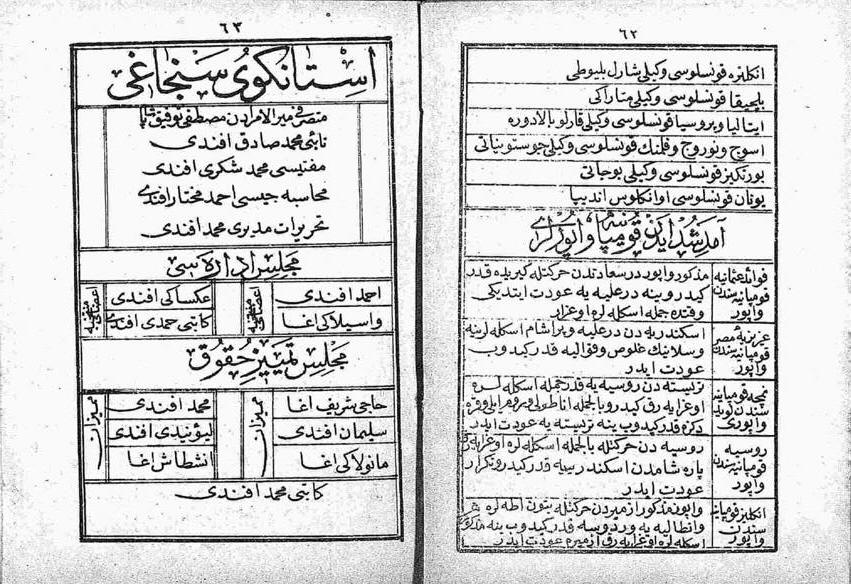 ٦٢
انكلتره قونسلوسى وكيلى شارل بليوطى
بلچيقا قونسلوسى وكيلى متاراكى
ايتاليا وپروسيا قونسلوسى وكيلى قارلو بالادوره
اسوج ونوروج وفلمنك قونسلوسى وكيلى
پورتكيز قونسلوسى وكيلى بوجاتى
يونان قونسلوسى اوانكلوس
آمد شد ايدن قومپانيه واپورلرى
فوائد عثمانيه قومپانيه سندن واپور
مذكور واپور درسعادتدن حركتله كريده قدر
كيدر وينه درعليه يه عودت ايتديكى
وقتده جمله اسكله لره اوغرار
عزيزيۀ مصر قومپانيه سندن واپور
اسكندريه دن درعليه وبرالشام اسكله لرينه
وسلانيك غلوس وقواليه قدر كيدوب
عودت ايدر
نمچه قومپانيه سندن لويد واپورى
تريسته دن روسيه يه قدر جمله اسكله لره
اوغرايه رق كيدر وبالجمله اناطولى وروم ايلى وقره
دكزه قدر كيدوب ينه تريسته يه عودت ايدر
روسيه قومپانيه سندن واپور
روسيه دن حركتله بالجمله اسكله لره اوغرايه رق
بارشامدن اسكندريه قدر كيدر وتكرار
عودت ايدر
انكليز قومپانيه سندن واپور
واپور مذكور ازميردن حركتله بتون اطه لره
وانطاليه يه وردوسه قدر كيدوب ينه مذكور
اسكله لره اوغرايه رق ازميره عودت ايدر
٦٣
استانكوى سنجاغى
متصرفى ميرالامرادن مصطفى توفيق پاشا
نائبى محمد صادق افندى
مفتيسى محمد شكرى افندى
محاسبه جيسى احمد مختار افندى
تحريرات مديرى محمد افندى
مجلس اداره سى
اعضاى منتخبه
احمد افندى
واسيلاكى اغا
اعضاى منتخبه
عكساكى افندى
كاتبى حمدى افندى
مجلس تمييز حقوق
مميزان
حاجى شريف اغا
سليمان افندى
مانولاكى اغا
مميزان
محمد افندى
ليونيدى افندى
انشطاش اغا
كاتبى محمد افندى